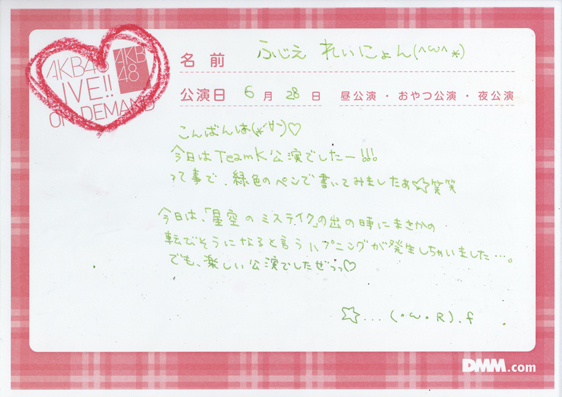 AKB48 LIVE!! ON DEMAND
AKB48
名前 ふじえ れいにょん(^ω^*)
公演日 6月28日 昼公演・おやつ公演・夜公演
こんばんは(*'∀')♡
今日はTeamK公演でしたー!!!
って事で、緑色のペンで書いてみましたぁ☆笑笑
今日は、「星空のミステイク」の出の時にまさかの
転びそうになると言うハプニングが発生しちゃいました…。
でも、楽しい公演でしたぜっっ♡
☆...(・ω・R).f
DMM.com